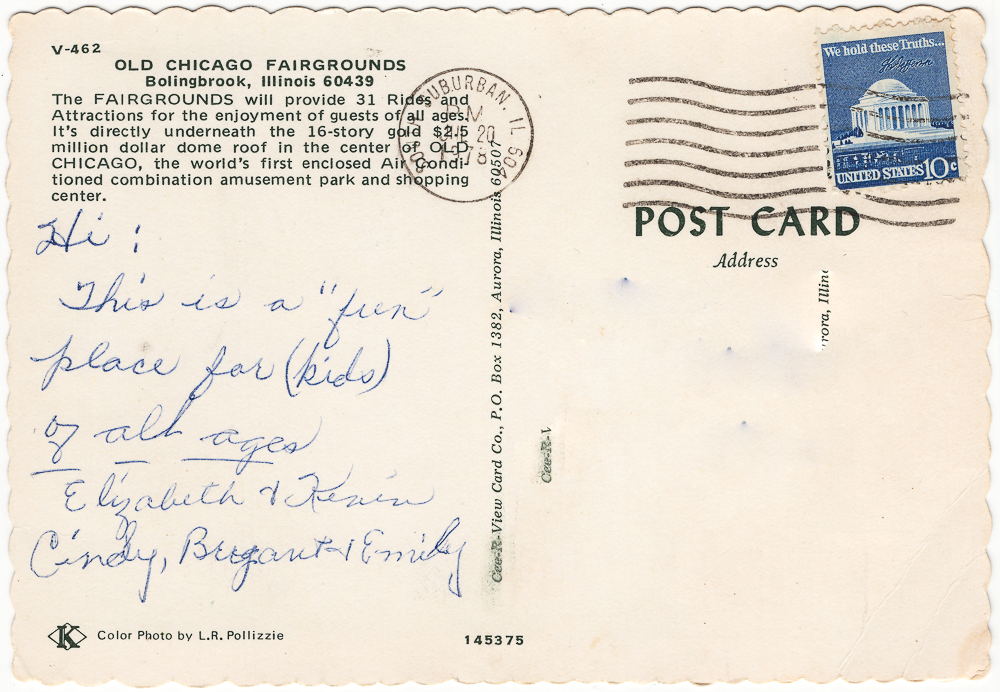 V-462
OLD CHICAGO FAIRGROUNDS
Bolingbrook, Illinois 60439
The FAIRGROUNDS will provide 31 Rides and
Attractions for the enjoyment of guests of all ages.
It's directly underneath the 16-story gold $2.5
million dollar dome roof in the center of OLD
CHICAGO, the world's first enclosed Air Condi-
tioned combination amusement park and shopping
center.
Hi :
This is a "fun"
place for (kids)
of all ages
Elizabeth & Kevin
Cindy, & Emily
Color Photo by L.R. Pollizzie
SUBURBAN, IL 604
PM
20
Cee-R-View Card Co., P.O. Box 1382, Aurora, Illinois 60507
Cee-R-V
145375
We hold these Truths...
UNITED STATES 10c
POST CARD
Address
rora, Illin